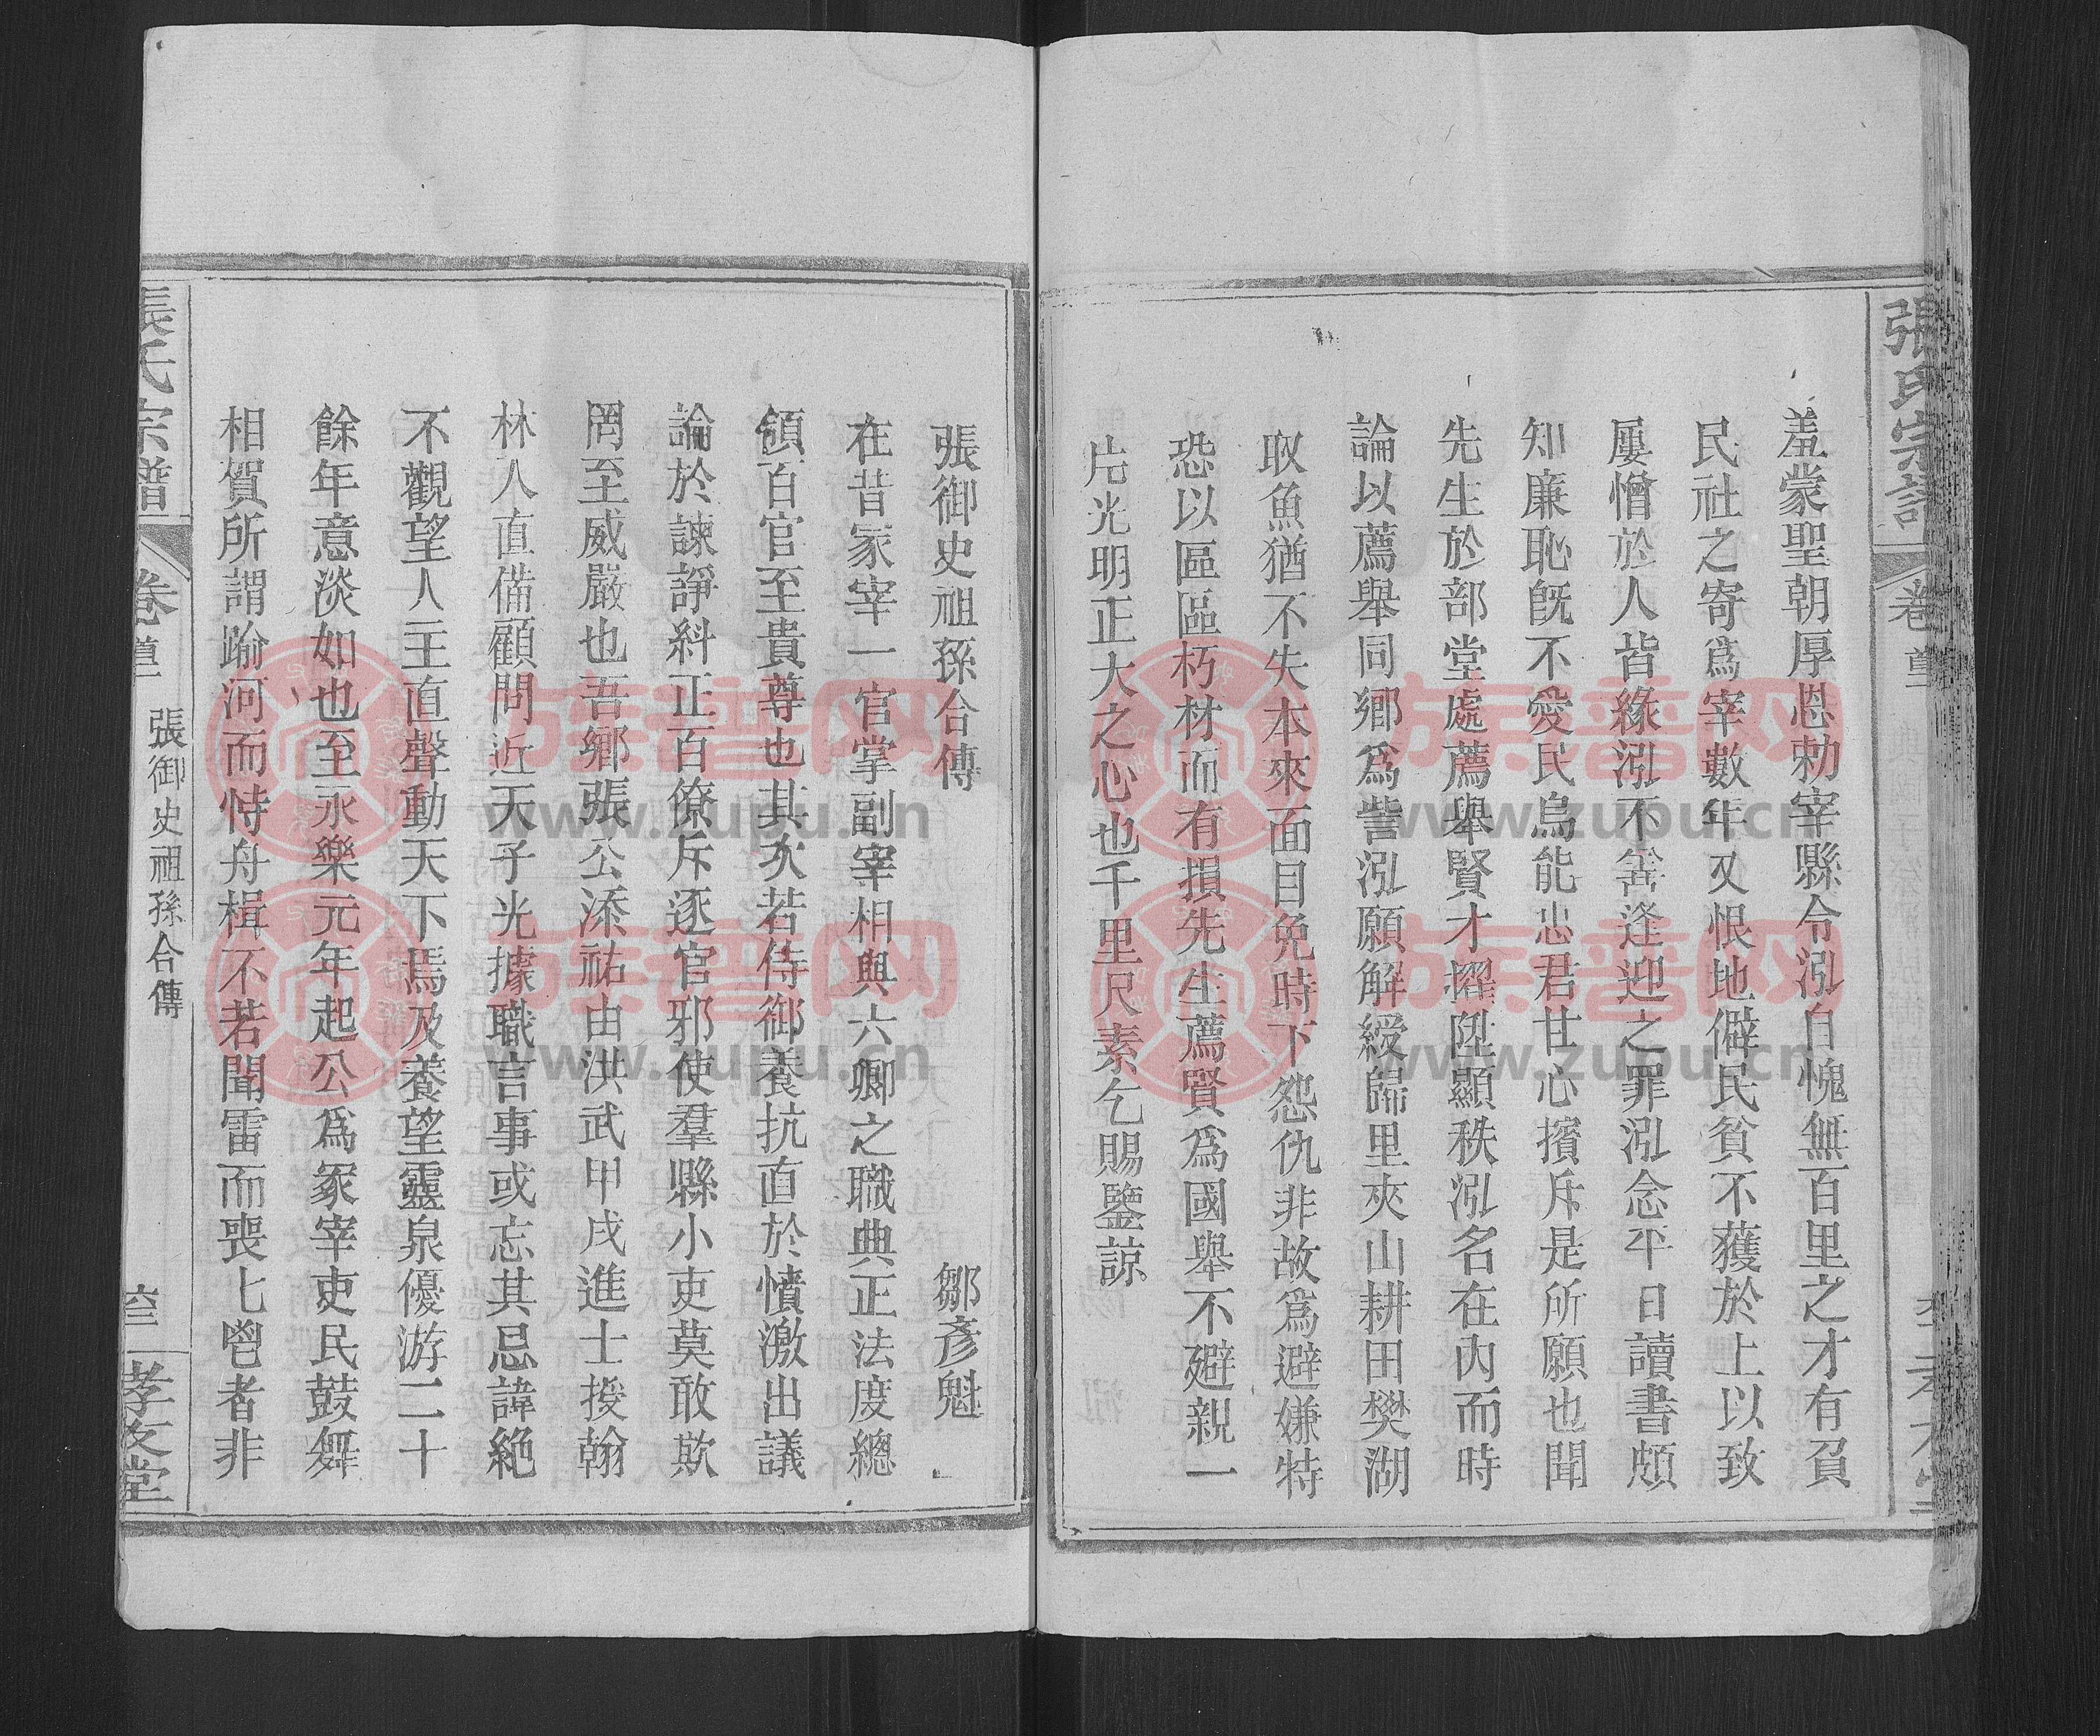 張氏宗譜 卷首
羞蒙聖朝厚恩勅宰縣令泓自愧無百里之才有負
民社之寄爲宰數年又恨地僻民貧不獲於上以致
屢憎於人皆緣泓不善逢迎之罪泓念平日讀書頗
知廉恥旣不愛民烏能忠君甘心擯斥是所願也聞
先生於部堂處薦舉賢才擢陞顯秩泓名在內而時
論以薦舉同鄉爲訾泓願解綬歸里夾山耕田樊湖
取魚猶不失本來面目免時下怨仇非故爲避嫌特
恐以區區朽材而有損先生薦賢爲國舉不避親一
片光明正大之心也千里尺素乞賜鑒諒
張御史祖孫合傳 鄒彥魁
在昔冢宰一官掌副宰相與六卿之職典正法度總
領百官至貴尊也其次若侍御養抗直於憤激出議
論於諫諍糾正百僚斥逐官邪使羣縣小吏莫敢欺
罔至威嚴也吾鄉張公添祐由洪武甲戌進士授翰
林入直備顧問近天子光據職言事或忘其忌諱絶
不觀望人主直聲動天下焉及養望靈泉優游二十
餘年意淡如也至永樂元年起公爲冢宰吏民鼓舞
相賀所謂踰河而恃舟楫不若聞雷而喪匕鬯者非
張氏宗譜 卷首 張御史祖孫合傳 六二 孝友堂
族譜网
www.zupu.cn
族譜网
www.zupu.cn
族譜网
www.zupu.cn
族譜网
www.zupu.cn